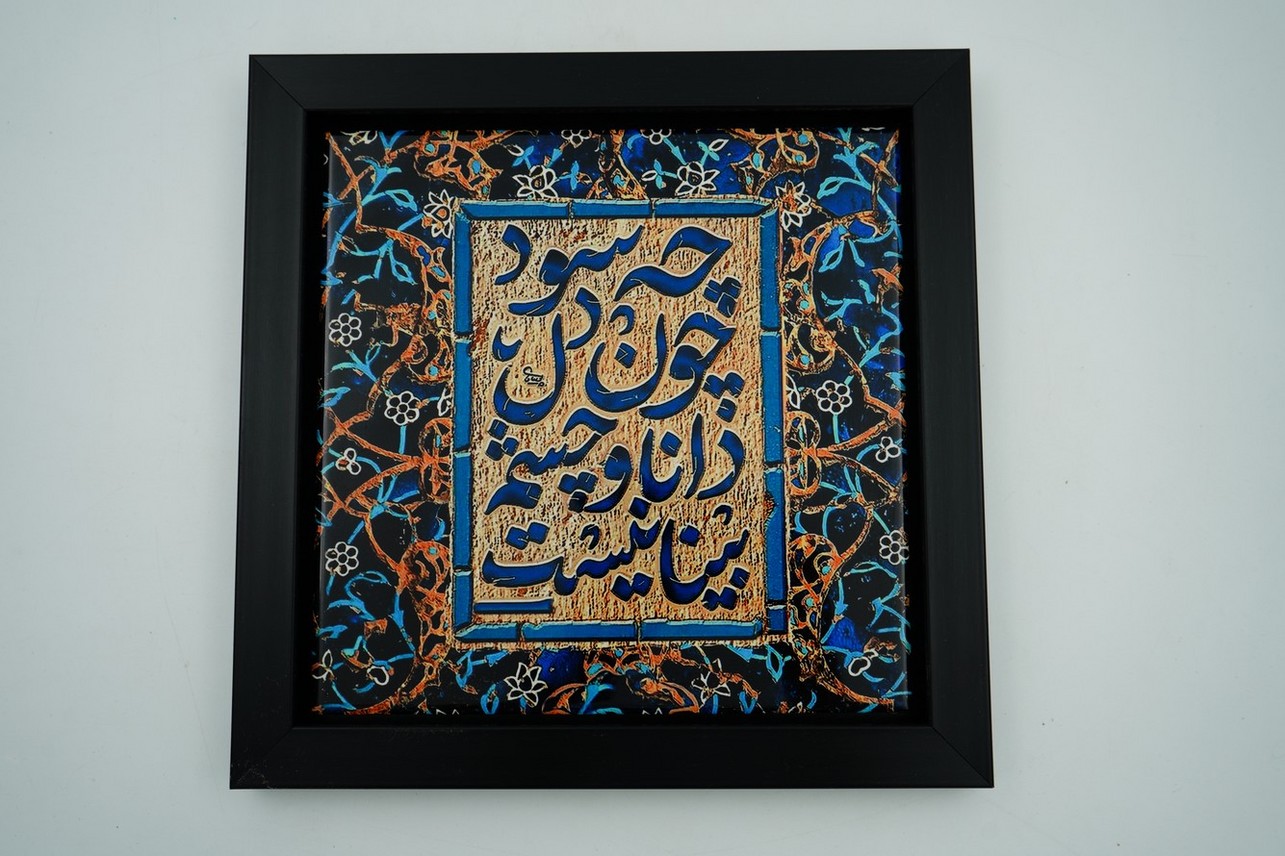 چه سود
چون دل
دانا و چشم
بینا نیست